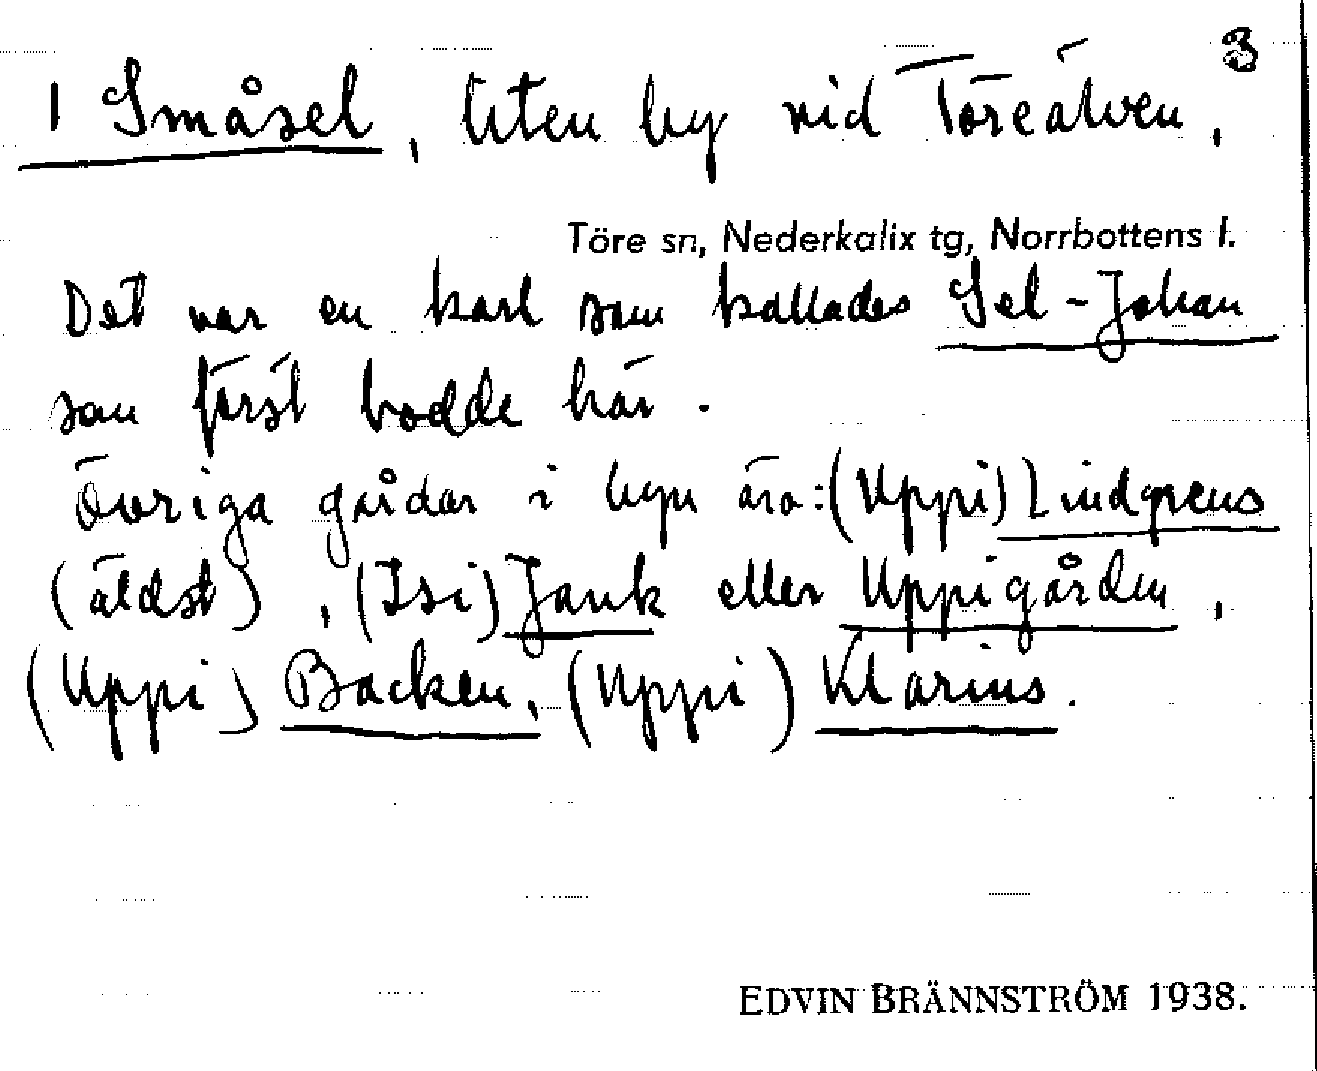 3
1 Småsel, liten by vid Töreälven,
Töre sn, Nederkalix tg, Norrbottens l.
Det var en karl som kallades Sel-Johan
som först bodde här.
Övriga gårdar i byn äro: (Uppi) Lindgrens
(äldst), (Isi) Jank eller Uppigården,
(Uppi) Backen, (Uppi) Klarins.
EDVIN BRÄNNSTRÖM 1938.